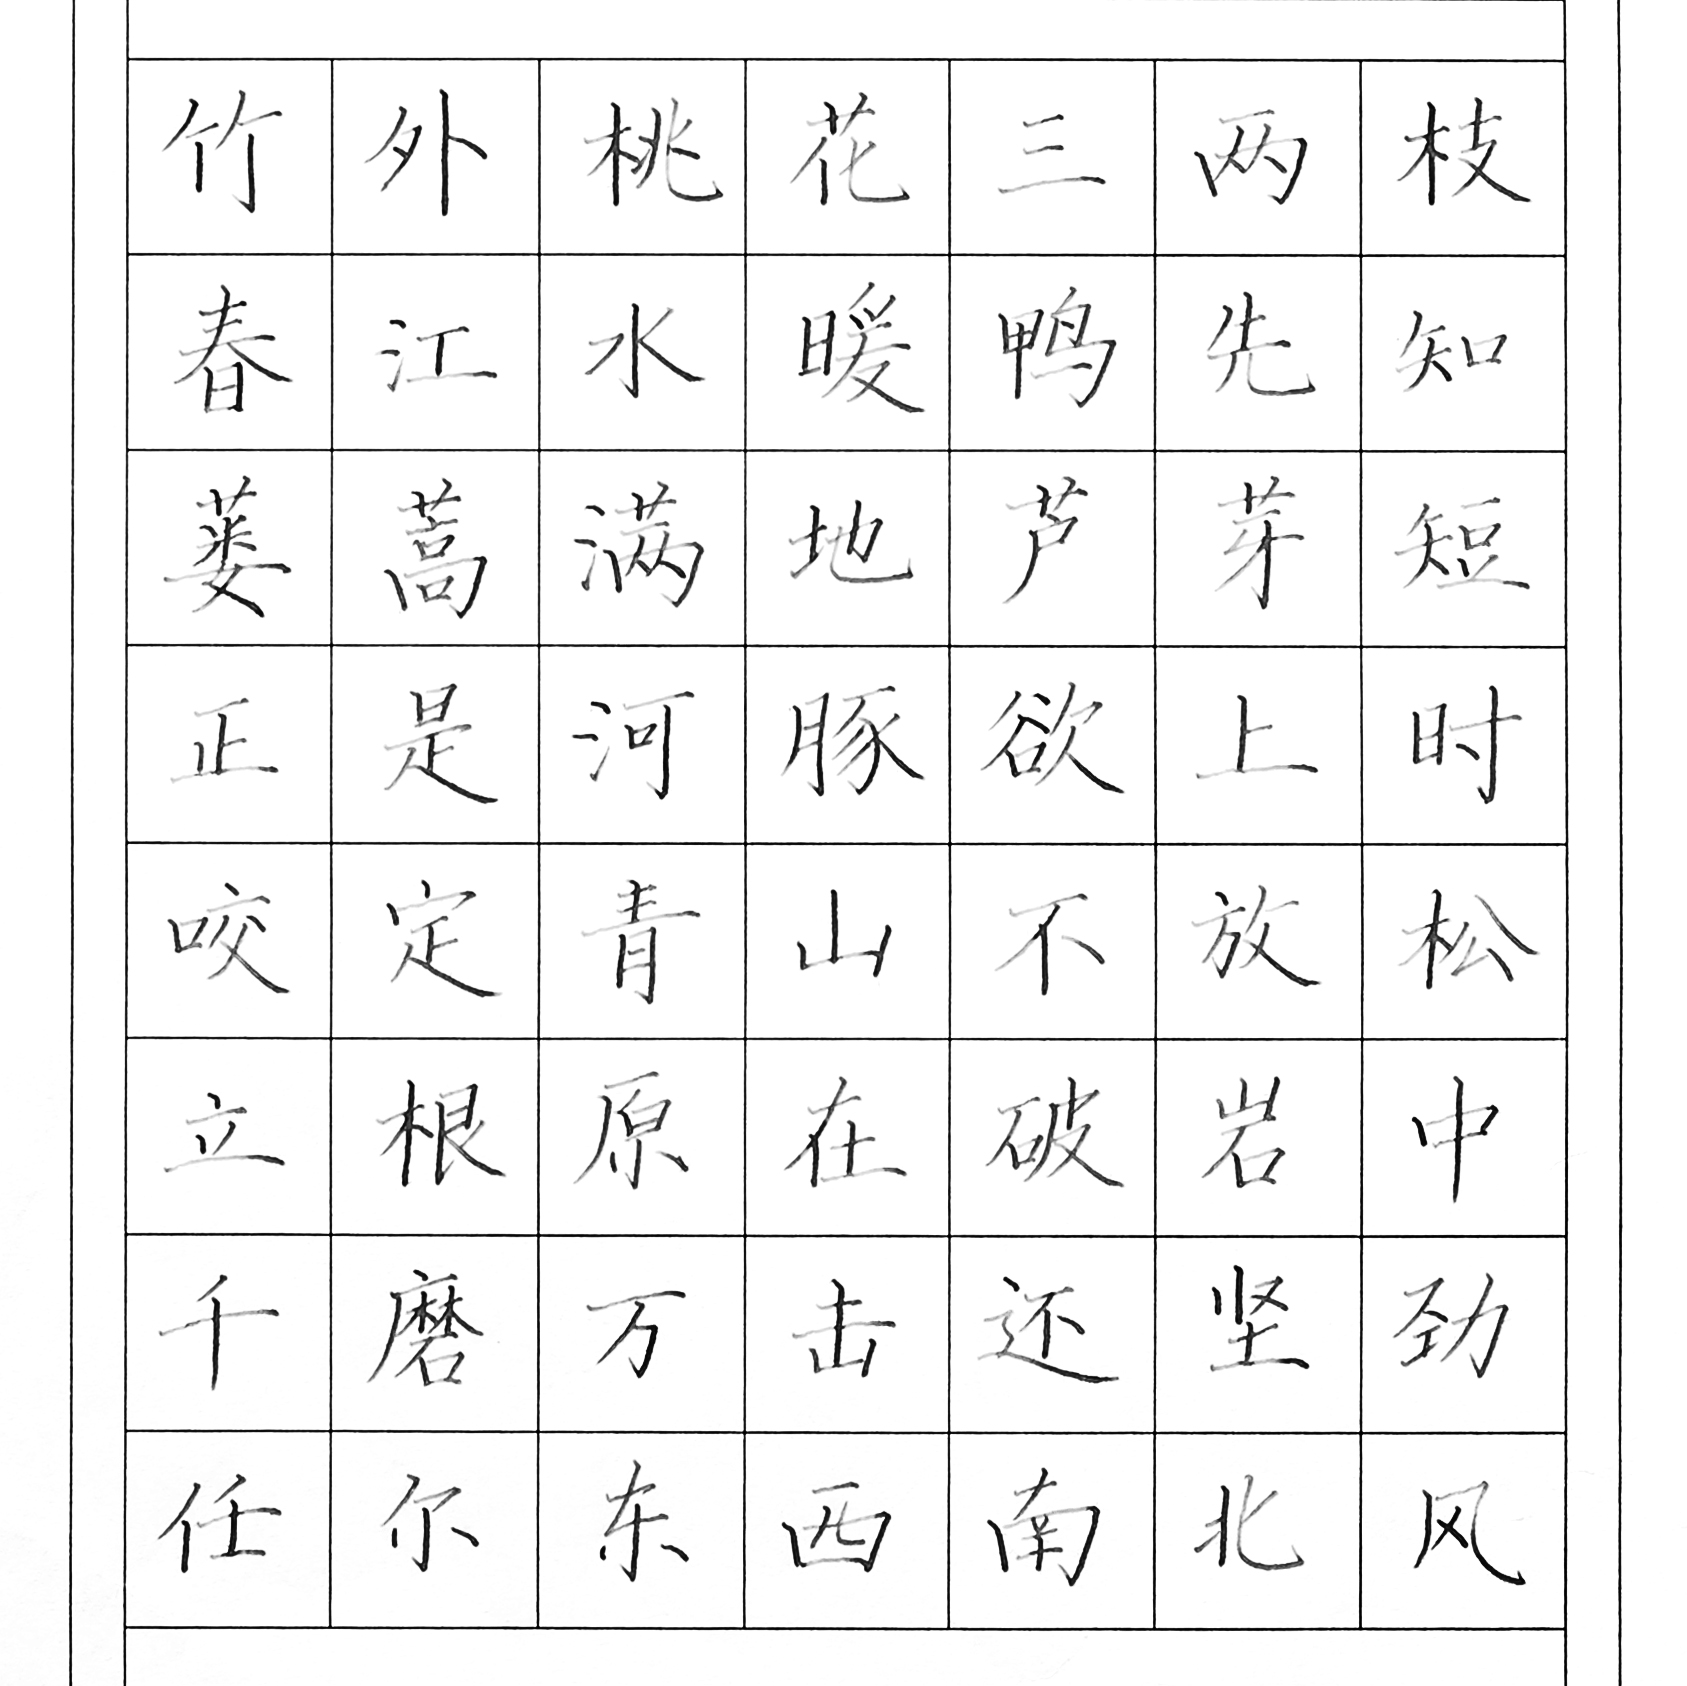 竹外桃花三两枝
春江水暖鸭先知
蒌蒿满地芦芽短
正是河豚欲上时
咬定青山不放松
立根原在破岩中
千磨万击还坚劲
任尔东西南北风